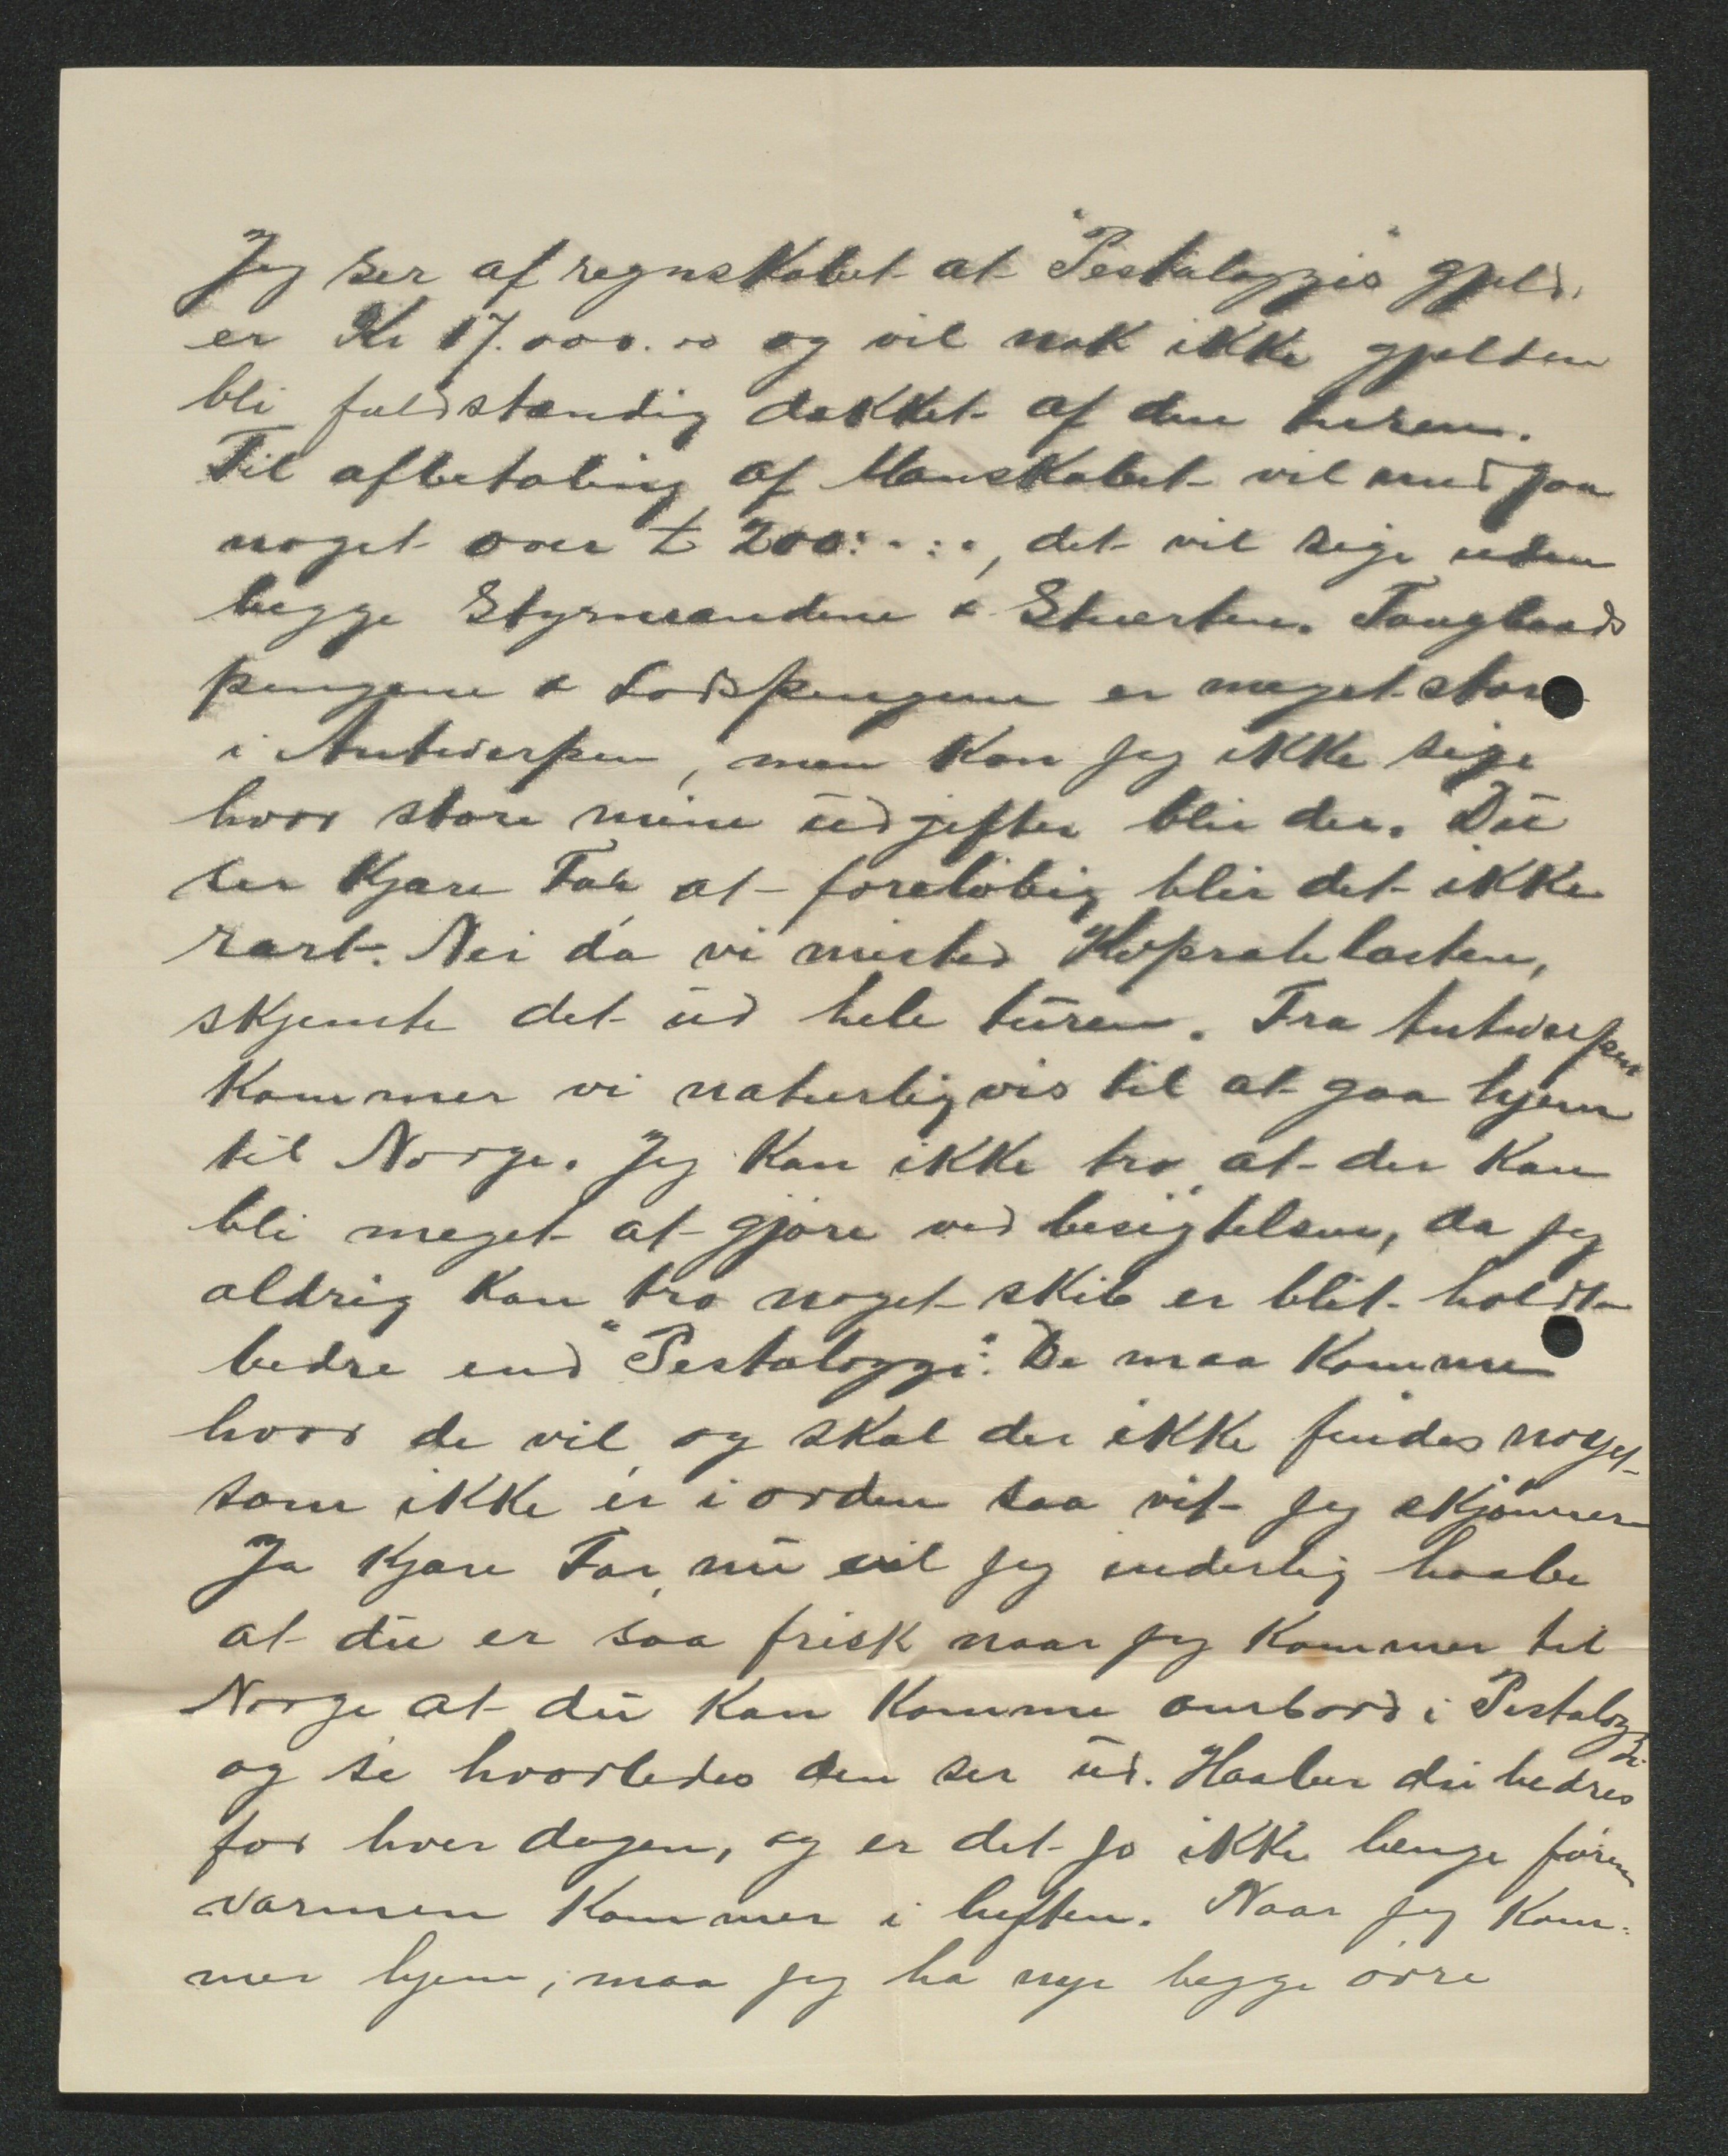 Jeg ser af regnskabet at "Pestalozzis" gjeld.
er Kr 17.000.00 og vil nok ikke gjelden
bli fuldstændig dækket af den turen.
Til afbetaling af Manskabet vil medgaa
noget over £ 200:-:-, det vil sige uden
begge Styrmændene & Stuerten. Taugbaads
pengene & Lodspengene er meget store
i Antwerpen, men kan jeg ikke sige
hvor store mine udgifter blir der. Du
ser Kjære Far at foreløbig blir det ikke
rart. Nei da vi misted Koprahlasten,
skjemte det ud hele turen. Fra Antwerpen
kommer vi naturligvis til at gaa hjem
til Norge. Jeg kan ikke tro, at der kan
bli meget at gjøre ved besigtelsen, da jeg
aldrig kan tro noget skib er blit holdt
bedre end "Pestalozzi". De maa komme
hvor de vil, og skal der ikke findes noget
som ikke er i orden saa vit jeg skjønner
Ja Kjære Far, nu vil jeg inderlig haabe
at du er saa frisk naar jeg kommer til
Norge at du kan komme ombord i Pestalozzi
og se hvorledes den ser ud. Haaber du bedres
for hver dagen, og er det jo ikke længe føren
varmen kommer i luften. Naar jeg kom-
mer hjem, maa jeg ha nye begge øvre